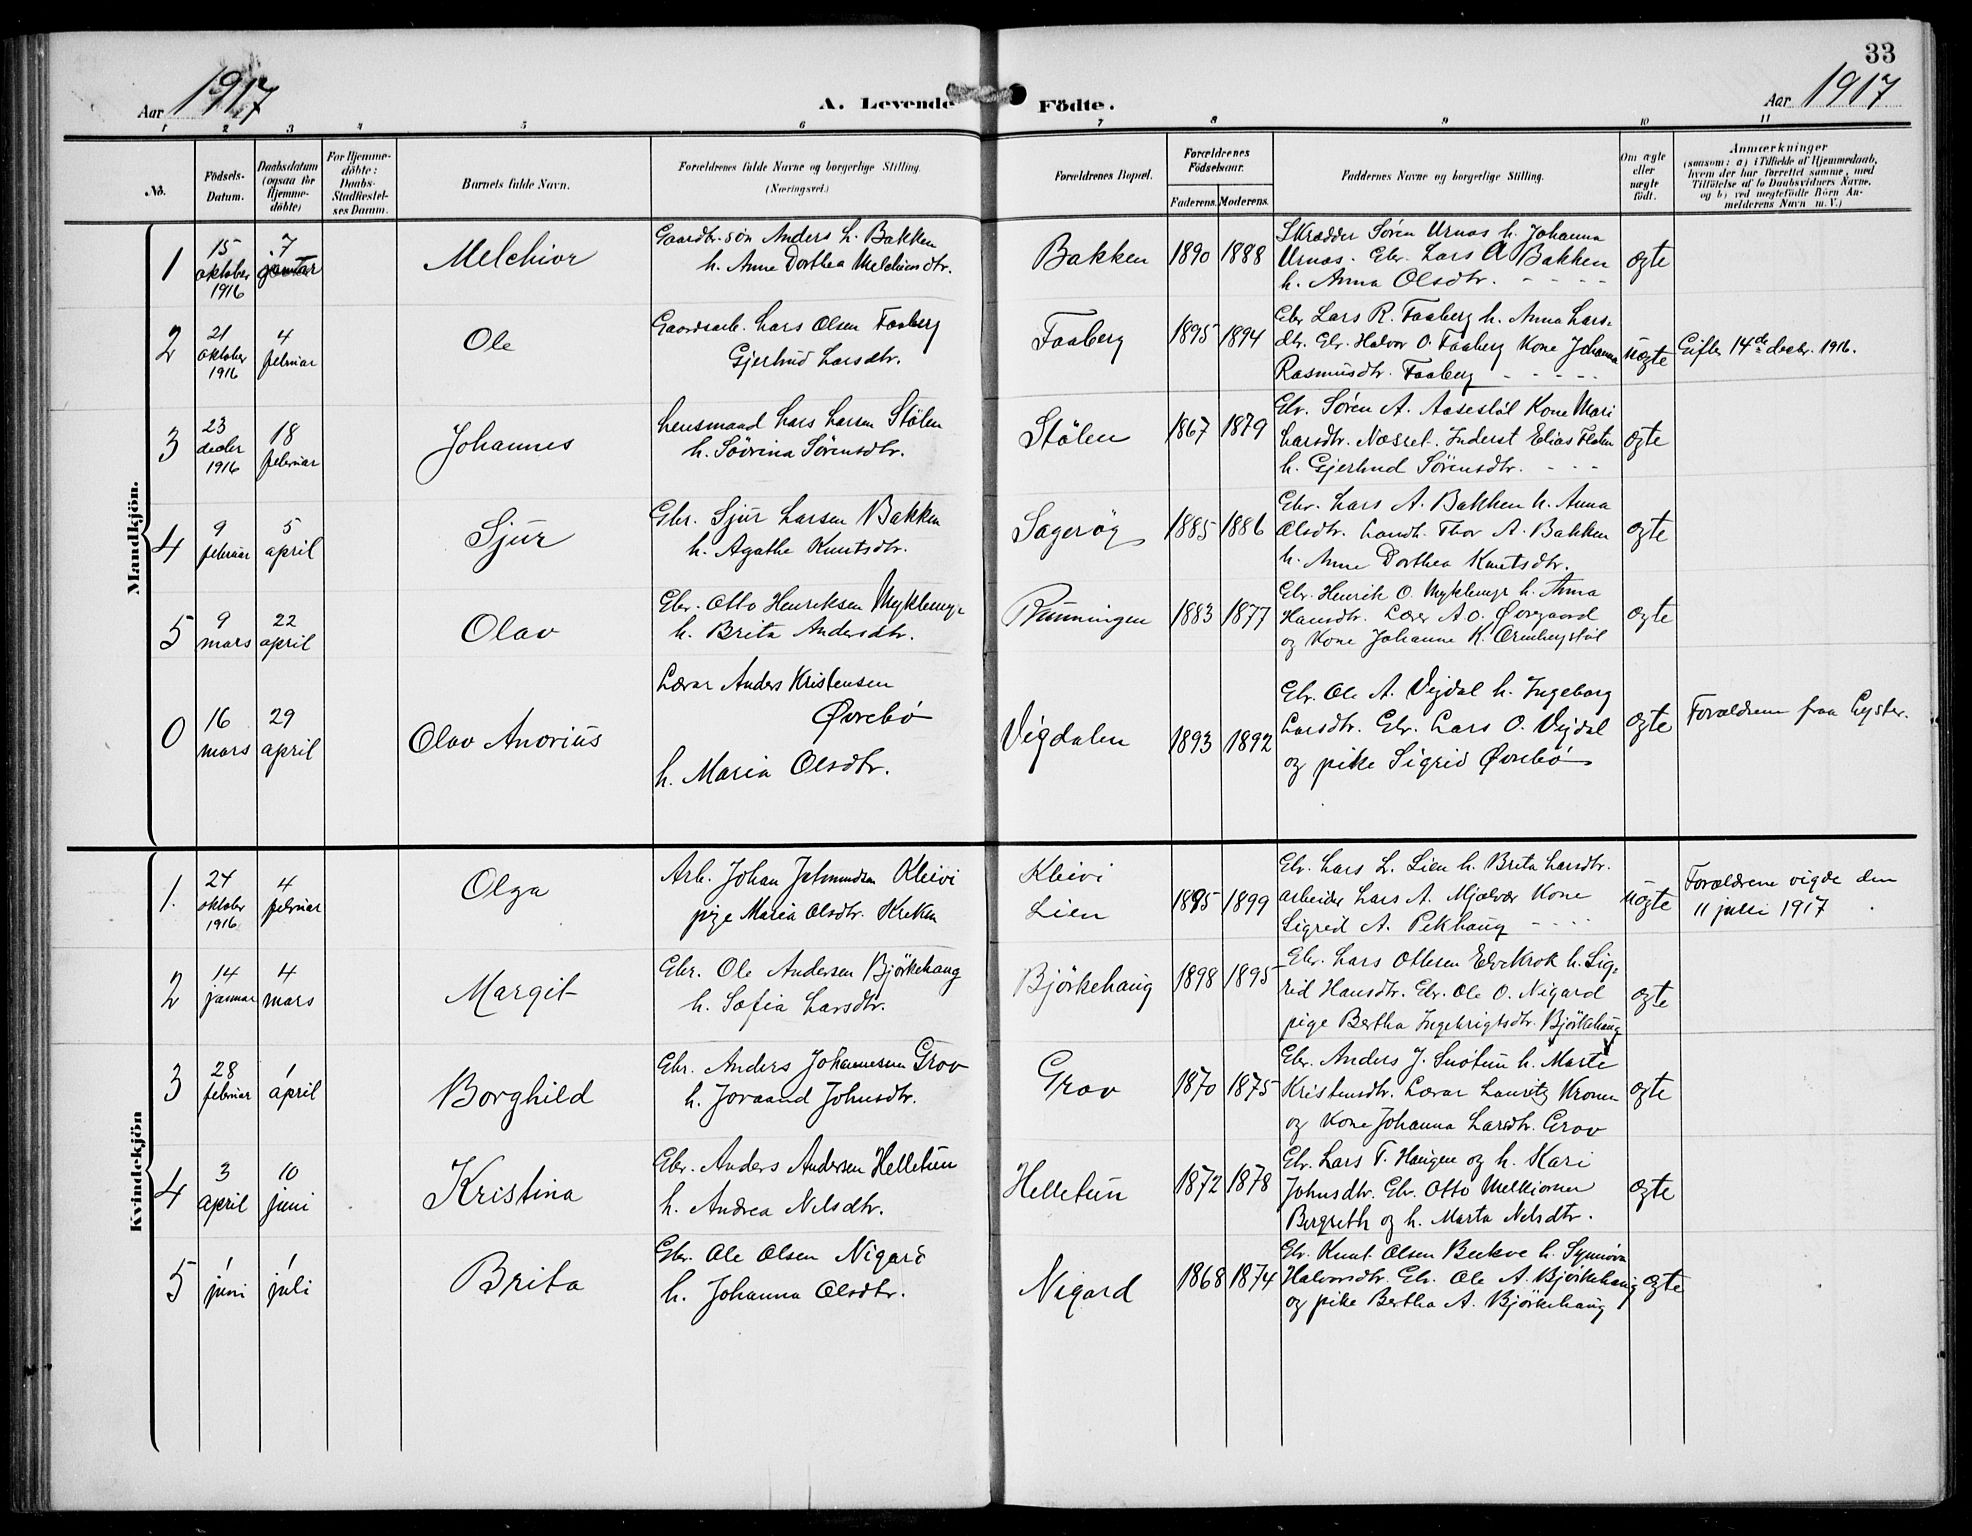 33
Aar 1917
A. Levende Födte.
Aar 1917
1 2 3 4 5 6 7 8 9 10 11
No.
Födsels-Datum.
Daabsdatum (ogsaa for Hjemme-döbte)
For Hjemme-döbte: Daabs-Stadfæstel-ses Datum.
Barnets fulde Navn.
Forældrenes fulde Navne og borgerlige Stilling.
(Næringsvei.)
Forældrenes Bopæl.
Forældrenes Födselsaar.
Faderens. Moderens.
Faddernes Navne og borgerlige Stilling.
Om ægte eller uægte födt.
Anmærkninger
(saasom: a) i Tilfælde af Hjemmedaab,
hvem der har forrettet samme, med
Tilföielse af to Daabsvidners Navne,
og b) ved uægtefödte Börn An-
melderens Navn m. V.)
Mandkjön.
1
15 oktober 1916
7 januar
Melchior
Gaardbr. søn Anders L. Bakken
h. Anne Dorthea Melchiorsdtr.
Bakken
1890 1888
Skrædder Søren Urnas h. Johanna
Urnas. Gbr. Lars A Bakken
h. Anna Olsdtr. - - - -
ægte
2
21 oktober 1916
4 februar
Ole
Gaardsarb. Lars Olsen Faaberg
Gjertrud Larsdtr.
Faaberg
1895 1894
Gbr Lars R. Faaberg h. Anna Lars-
dtr. Gbr. Halvor O. Faaberg Kone Johanna
Rasmusdtr. Faaberg - - - - -
uægte
Gifter 14de decbr. 1916.
3
23 decbr 1916
18 februar
Johannes
Lensmand Lars Larsen Stölen
h. Sövrina Sörensdtr.
Stölen
1867 1879
Gbr. Sören A. Aasestöl Kone Mari
Larsdtr. Næsret. Inderst Elias Flaten
h. Gjertrud Sörensdtr. - - -
ægte
4
9 februar
5 april
Sjur
Gbr. Sjur Larsen Bakken
h. Agathe Knutsdtr.
Sagerøy
1885 1886
Gbr. Lars A. Bakken h. Anna
Olsdtr. Landh. Thor A. Bakken
h. Anne Dorthea Knutsdtr.
ægte
5
9 mars
22 april
Olav
Gbr. Otto Henriksen Myklemyr
h. Brita Andersdtr.
Rünningen
1883 1877
Gbr. Henrik O. Myklemyr h. Anna
Hansdtr. Lærer A O. Øvregaard
og Kone Johanne K. Ormbergstöl
ægte
0
16 mars
29 april
Olav Andrius
Lærar Anders Kristensen
Øvrebö
h. Maria Olsdtr.
Vigdalen
1893 1892
Gbr. Ole A. Vigdal h. Ingeborg
Larsdtr. Gbr. Lars O. Vigdal
og pike Sigrid Øvrebö
ægte
Forældrene fraa Lyster.
Kvindekjön
1.
24 oktober 1916
4 februar
Olga
Arb. Johan Kleivi
pige Maria Olsdtr. Kreken
Kleivi
Lien
1895 1899
Gbr. Lars L. Lien h. Brita Larsdtr.
arbeider Lars A. Mjælvær Kone
Sigrid A. Pekhaug - - -
uægte
Forældrene vigde den
11 juli 1917.
2
14 januar
4 mars
Margit
Gbr. Ole Andersen Björkehaug
h. Sofia Larsdtr.
Björkehaug
1898 1895
Gbr. Lars Ottesen Elvekrok h. Sig-
rid Hansdtr. Gbr. Ole O. Nigard
pige Bertha Ingebrigtsdtr. Björkehaug
ægte
3
28 februar
1 april
Borghild
Gbr. Anders Johannesen Grov
h. Joraand Johnsdtr.
Grov
1870 1875
Gbr. Anders J. Snötun h. Marte
Kristensdtr. Lærar Lauritz Kronen
og Kone Johanna Larsdtr. Grov
ægte
4
3 april
10 juni
Kristina
Gbr. Anders Andersen Helletun
h. Andrea Nelsdtr.
Helletun
1872 1878
Gbr. Lars T. Haugen og h. Kari
Johnsdtr. Gbr. Otto Melkiorsen
Bergseth og h. Marta Nelsdtr.
ægte
5
1 juni
1 juli
Brita
Gbr. Ole Olsen Nigard
h. Johanna Olsdtr.
Nigard
1868 1874
Gbr. Knut Olsen Bukve h. Synnöva
Halvorsdtr. Gbr. Ole A. Björkehaug
og pike Bertha A. Björkehaug
ægte